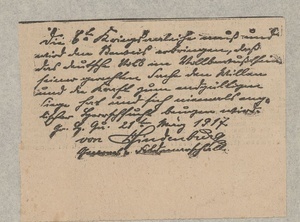 Die 6te Kriegsanleihe muß und
wird den Beweis erbringen, daß
das deutsche Volk im Vollbewußtsein
seiner gerechten Sache den Willen
und die Kraft zum endgiltigen
Siege hat und sich niemals
beugen wird.
Gr. H. Qu. 21. März 1917
von Hindenburg
Generalfeldmarschall.